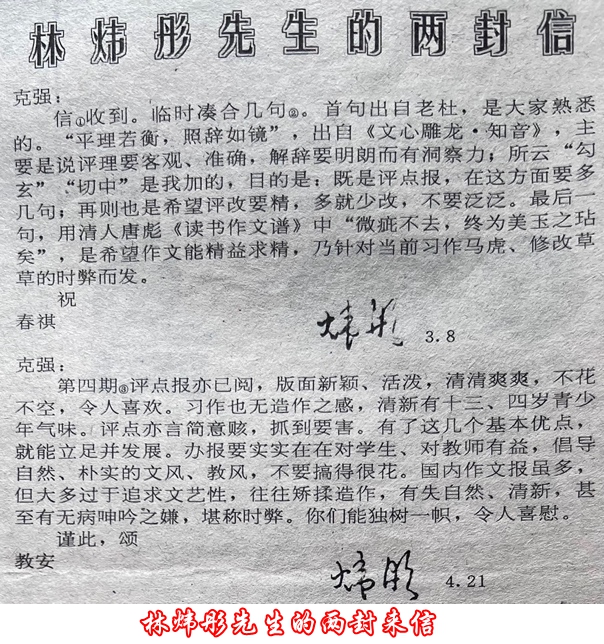 林炜彤先生的两封信
克强：
信①收到。临时凑合几句②。首句出自老杜，是大家熟悉
的。“平理若衡，照辞如镜”，出自《文心雕龙·知音》，主
要是说评理要客观、准确，解辞要明朗而有洞察力；所云“勾
玄”“切中”是我加的，目的是：既是评点报，在这方面要多
几句；再则也是希望评改要精，多就少改，不要泛泛。最后一
句，用清人唐彪《读书作文谱》中“微疵不去，终为美玉之玷
矣”，是希望作文能精益求精，乃针对当前习作马虎、修改草
草的时弊而发。
祝
春祺
炜彤 3.8
克强：
第四期③评点报亦已阅，版面新颖、活泼，清清爽爽，不花
不空，令人喜欢。习作也无造作之感，清新有十三、四岁青少
年气味。评点亦言简意赅，抓到要害。有了这几个基本优点，
就能立足并发展。办报要实实在在对学生、对教师有益，倡导
自然、朴实的文风、教风，不要搞得很花。国内作文报虽多，
但大多过于追求文艺性，往往矫揉造作，有失自然、清新，甚
至有无病呻吟之嫌，堪称时弊。你们能独树一帜，令人喜慰。
谨此，颂
教安
炜彤 4.21
林炜彤先生的两封来信